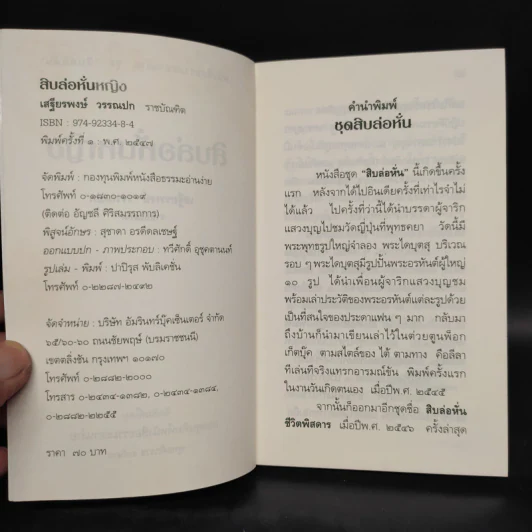 สิบล่อหั่นหญิง
เสฐียรพงษ์ วรรณปก ราชบัณฑิต
ISBN : 974-92334-8-4
พิมพ์ครั้งที่ ๑ : พ.ศ. ๒๕๔๗
จัดพิมพ์ : กองทุนพิมพ์หนังสือธรรมะอ่านง่าย
โทรศัพท์ ๐-๑๘๓๐-๑๐๑๙
(ติดต่อ อัญชลี ศิริสมรรถการ)
พิสูจน์อักษร : สุชาดา อรดีดลเชษฐ์
ออกแบบปก - ภาพประกอบ : ทวีศักดิ์ อุชุคตานนท์
รูปเล่ม - พิมพ์ : ปาปิรุส พับลิเคชั่น
โทรศัพท์ ๐-๒๒๘๗-๒๔๙๒
จัดจำหน่าย : บริษัท อัมรินทร์บุ๊คเซ็นเตอร์ จำกัด
๖๕/๖๐-๖๐ ถนนชัยพฤษ์ (บรมราชชนนี)
เขตตลิ่งชัน กรุงเทพฯ ๑๐๑๗๐
โทรศัพท์ ๐-๒๘๘๒-๒๐๐๐
โทรสาร ๐-๒๔๓๔-๑๓๘๒, ๐-๒๔๓๔-๑๓๘๔,
๐-๒๘๘๒-๒๒๕๕
ราคา ๗๐ บาท
คำนำพิมพ์
ชุดสิบล่อหั่น
หนังสือชุด “สิบล่อหั่น” นี้เกิดขึ้นครั้ง
แรก หลังจากได้ไปอินเดียครั้งที่เท่าไรจำไม่
ได้แล้ว ไปครั้งที่ว่านี้ได้นำบรรดาผู้จาริก
แสวงบุญไปชมวัดญี่ปุ่นที่พุทธคยา วัดนี้มี
พระพุทธรูปใหญ่จำลอง พระไดบุตสุ บริเวณ
รอบ ๆ พระไดบุตสุมีรูปปั้นพระอรหันต์ผู้ใหญ่
๑๐ รูป ได้นำเพื่อนผู้จาริกแสวงบุญชม
พร้อมเล่าประวัติของพระอรหันต์แต่ละรูปด้วย
เป็นที่สนใจของประดาแฟน ๆ มาก กลับมา
ถึงบ้านก็นำมาเขียนเล่าไว้ในต่วยตูนพ็อก
เก็ตบุ๊ค ตามสไตล์ของ ไต้ ตามทาง คือลีลา
ทีเล่นทีจริงแทรกอารมณ์ขัน พิมพ์ครั้งแรก
ในงานวันเกิดตนเอง เมื่อปีพ.ศ. ๒๕๔๕
จากนั้นก็ออกมาอีกชุดชื่อ สิบล่อหั่น
ชีวิตพิสดาร เมื่อปีพ.ศ. ๒๕๔๖ ครั้งล่าสุด